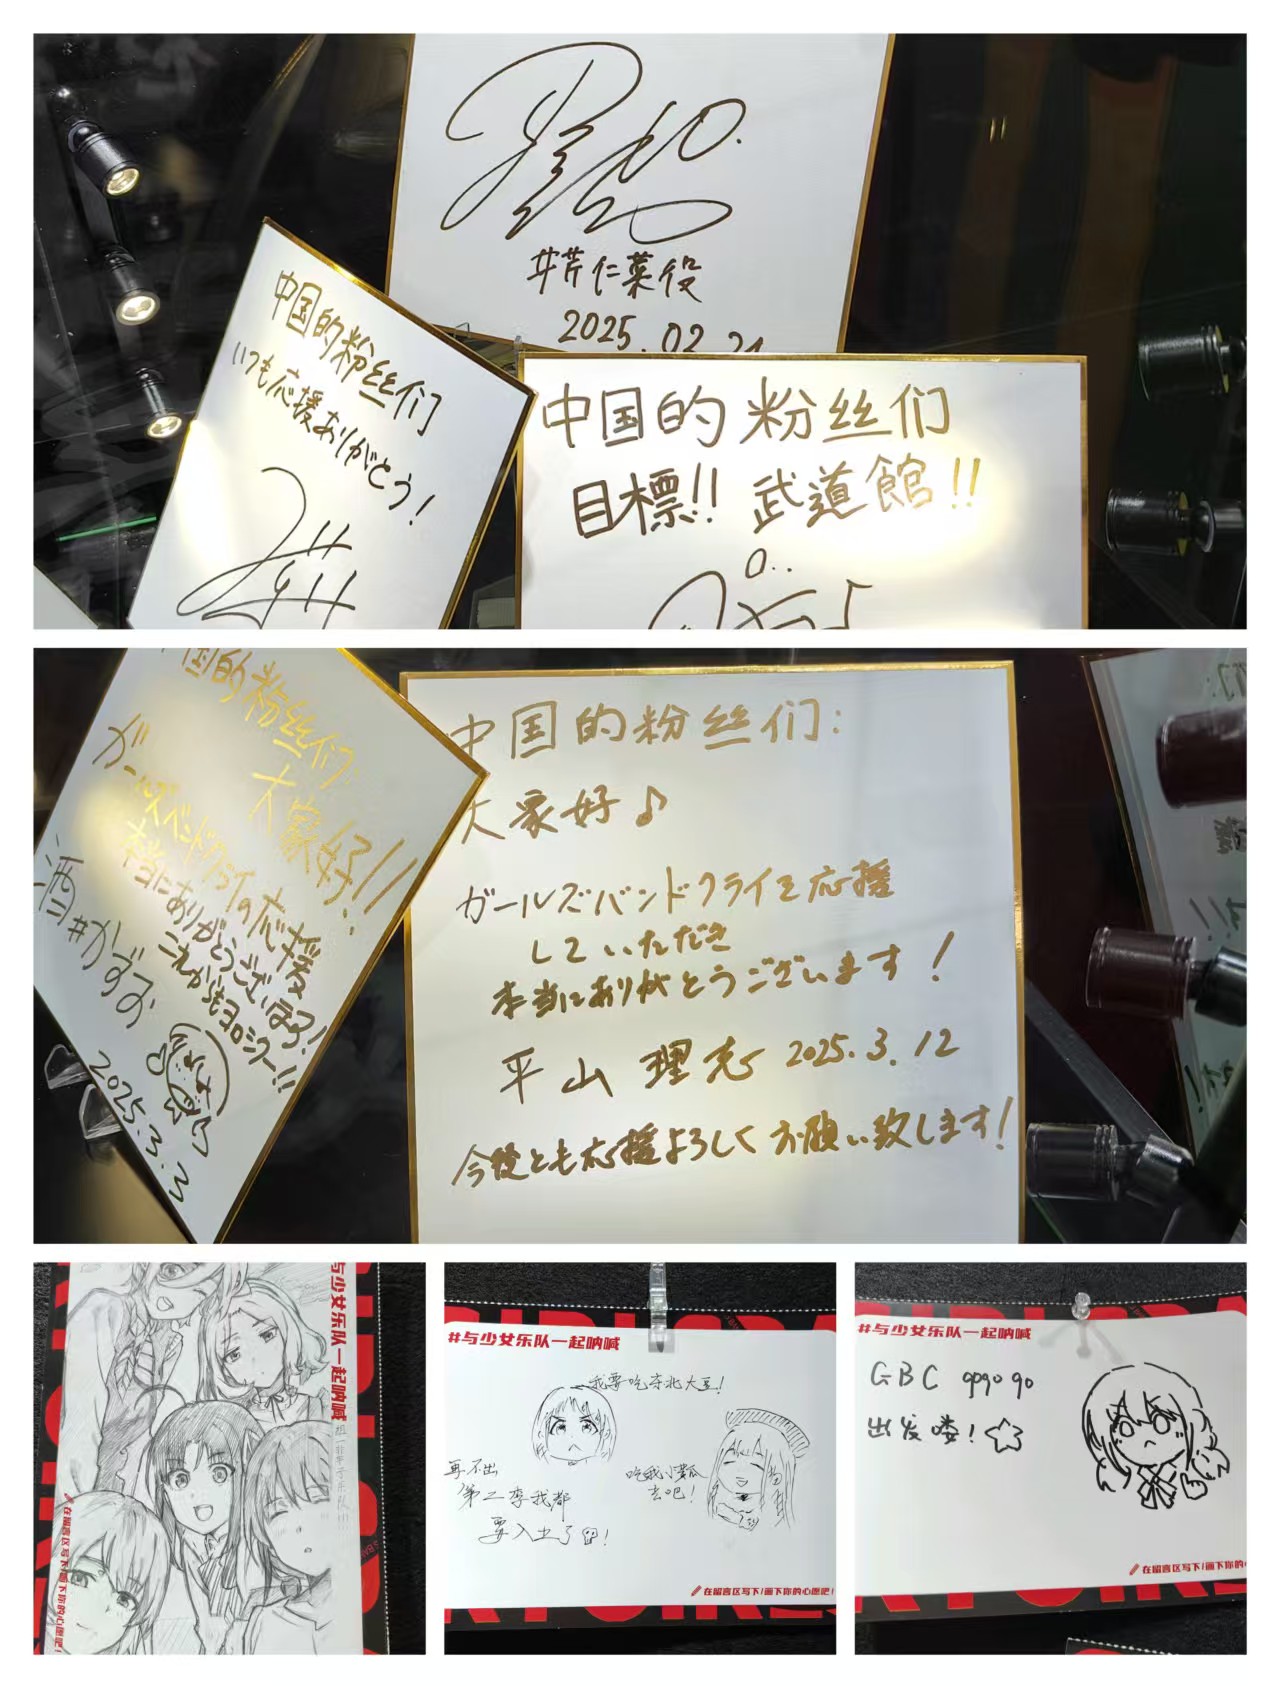 井芹仁菜役
2025.02.21
中国的粉丝们
いつも応援ありがとう!
中国的粉丝们
目標!! 武道館!!
国的粉丝们:
大家好!!
ガールズバンドクライの応援
本当にありがとうございまっス!
これからもヨロシクー!!
酒井かずお
2025.3.3
中国的粉丝们:
大家好♪
ガールズバンドクライを応援
していただき
本当にありがとうございます!
平山 理志 2025.3.12
今後とも応援よろしくお願い致します!
与少女乐队一起呐喊
在留言区写下/画下你的心愿吧!
#与少女乐队一起呐喊
我要吃东北大豆!
再不出
第二季我都
要入土了!
吃我小黄瓜
去吧!
在留言区写下/画下你的心愿吧!
#与少女乐队一起呐喊
GBC gogogo
出发喽!
在留言区写下/画下你的心愿吧!